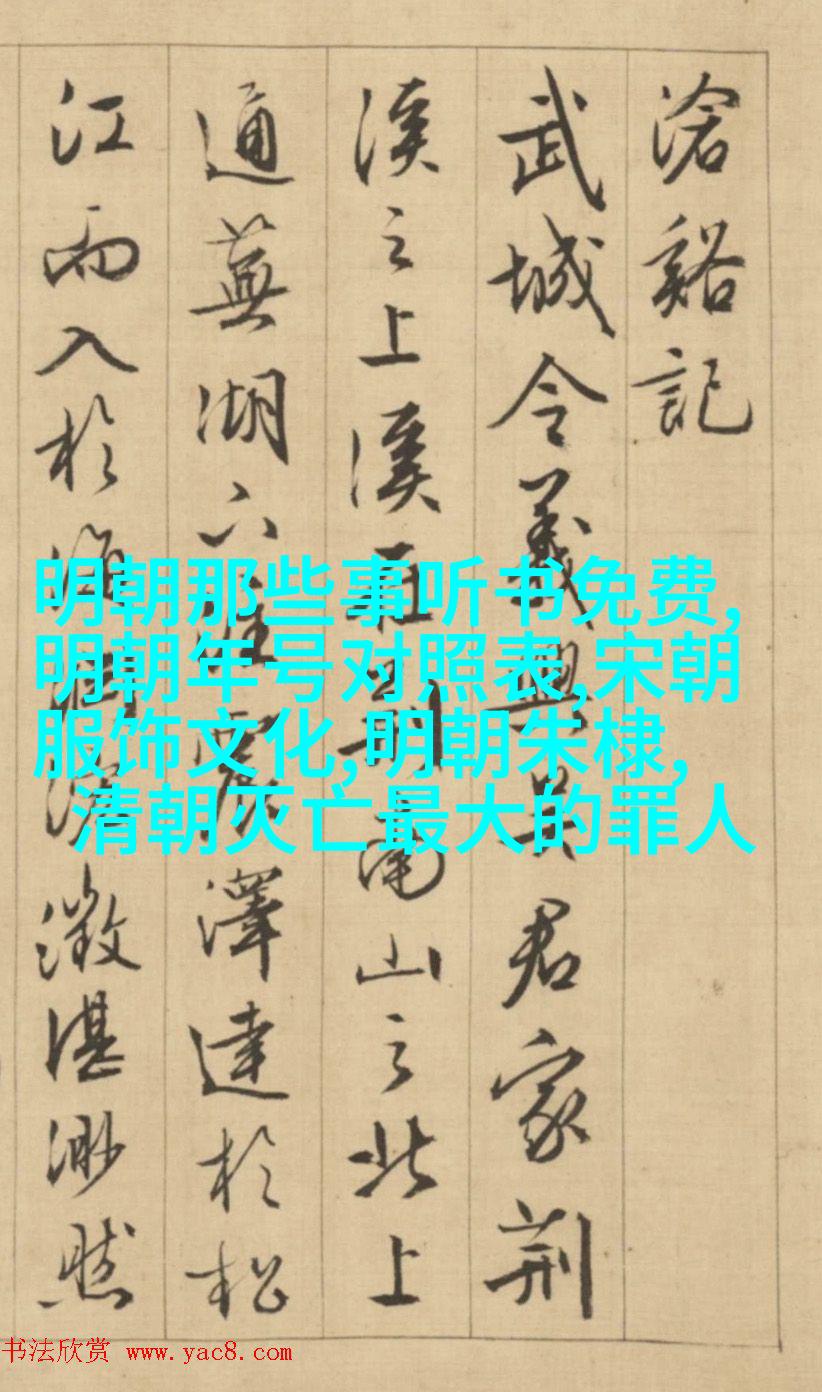 滄谿記
武城令義興吳君家荊
溪之上溪在荊南山之北上
通蕪湖下注震澤達於松
江而入於海澂湛渺然
明朝那些事听书免费,
明朝年号对照表,宋朝
服饰文化,明朝朱棣,
清朝灭亡最大的罪人
书法欣赏 www.yac8.com